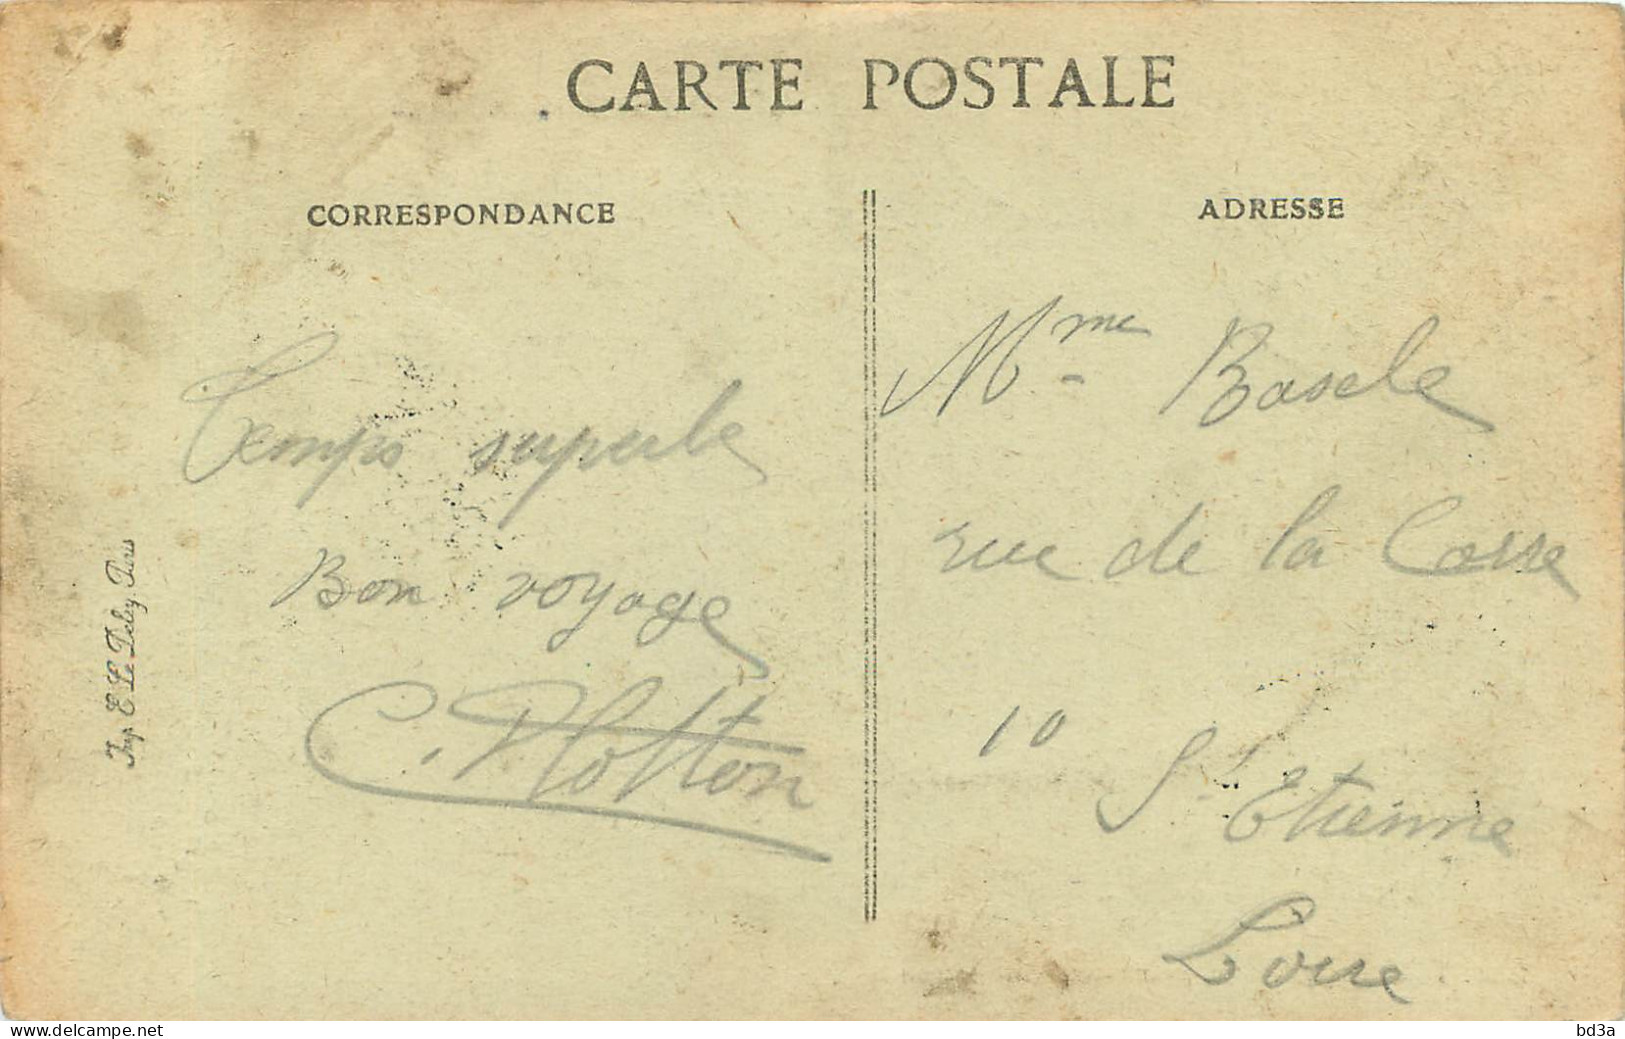 CARTE POSTALE
CORRESPONDANCE
ADRESSE
Temps superbe
Bon voyage
C. Plotton
Mme Bascle
rue de la Corre
10
St Etienne
Loire
Imp. E. Le Deley, Paris
www.delcampe.net
bd3a